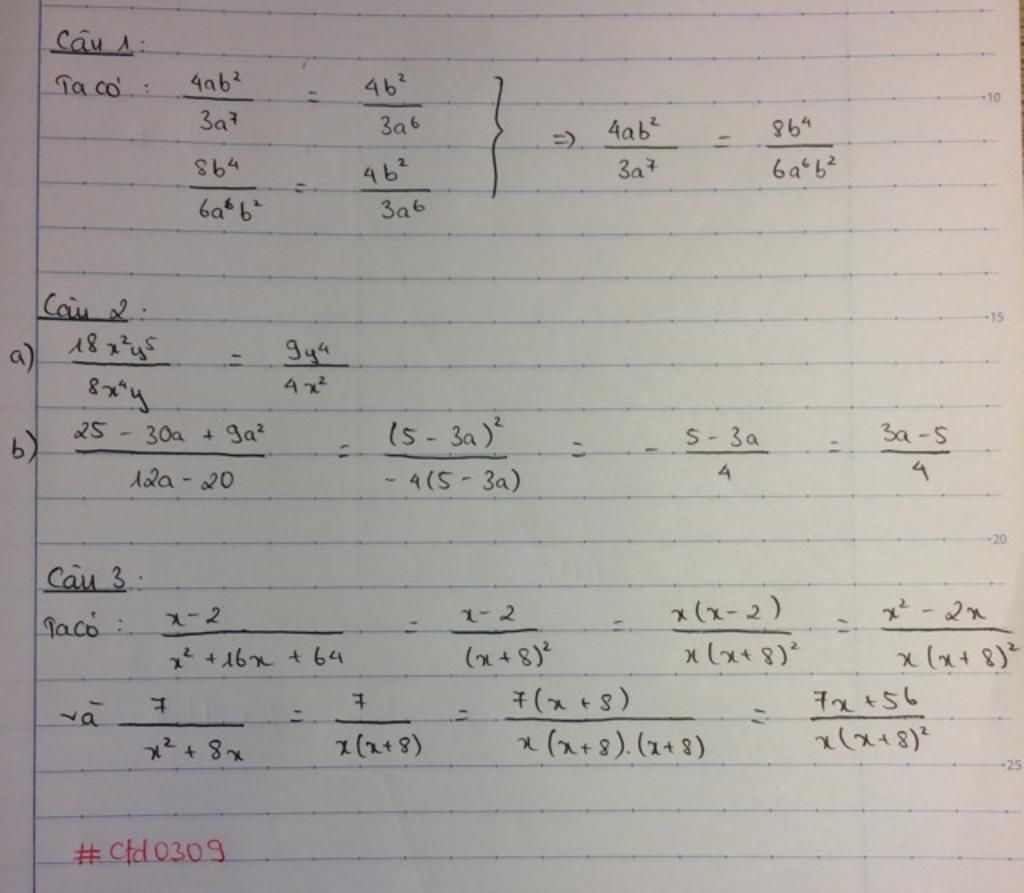 Câu 1:
Ta có: \frac{4ab^2}{3a^7} = \frac{4b^2}{3a^6}
\frac{8b^4}{6a^6b^2} = \frac{4b^2}{3a^6} } => \frac{4ab^2}{3a^7} = \frac{8b^4}{6a^6b^2}
Câu 2:
a) \frac{18x^2y^5}{8x^4y} = \frac{9y^4}{4x^2}
b) \frac{25 - 30a + 9a^2}{12a - 20} = \frac{(5 - 3a)^2}{-4(5 - 3a)} = - \frac{5 - 3a}{4} = \frac{3a - 5}{4}
Câu 3:
Ta có: \frac{x - 2}{x^2 + 16x + 64} = \frac{x - 2}{(x + 8)^2} = \frac{x(x - 2)}{x(x + 8)^2} = \frac{x^2 - 2x}{x(x + 8)^2}
và \frac{7}{x^2 + 8x} = \frac{7}{x(x + 8)} = \frac{7(x + 8)}{x(x + 8).(x + 8)} = \frac{7x + 56}{x(x + 8)^2}
# Ctd0309
10
15
20
25